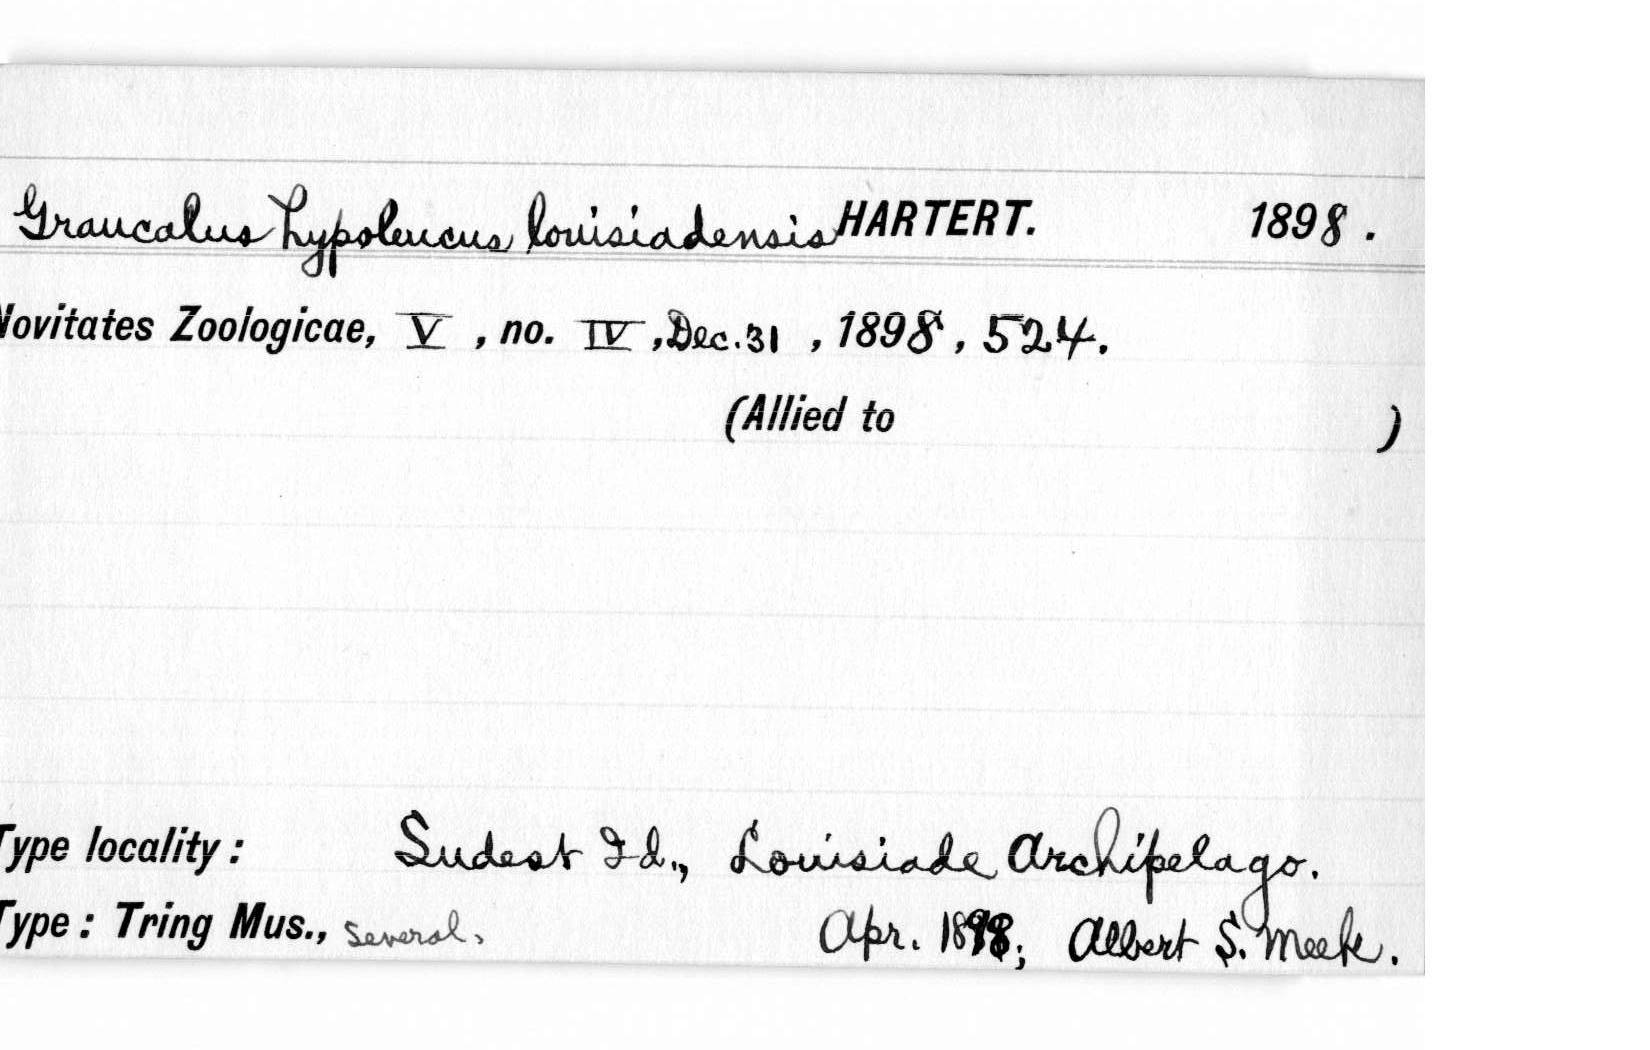 Graucalus hypoleucus louisiadensis HARTERT. 1898.
Novitates Zoologicae, V, no. IV, Dec. 31, 1898, 524.
(Allied to )
Type locality: Sudest Id., Louisiade Archipelago.
Type: Tring Mus., several. Apr. 1898; Albert S. Meek.